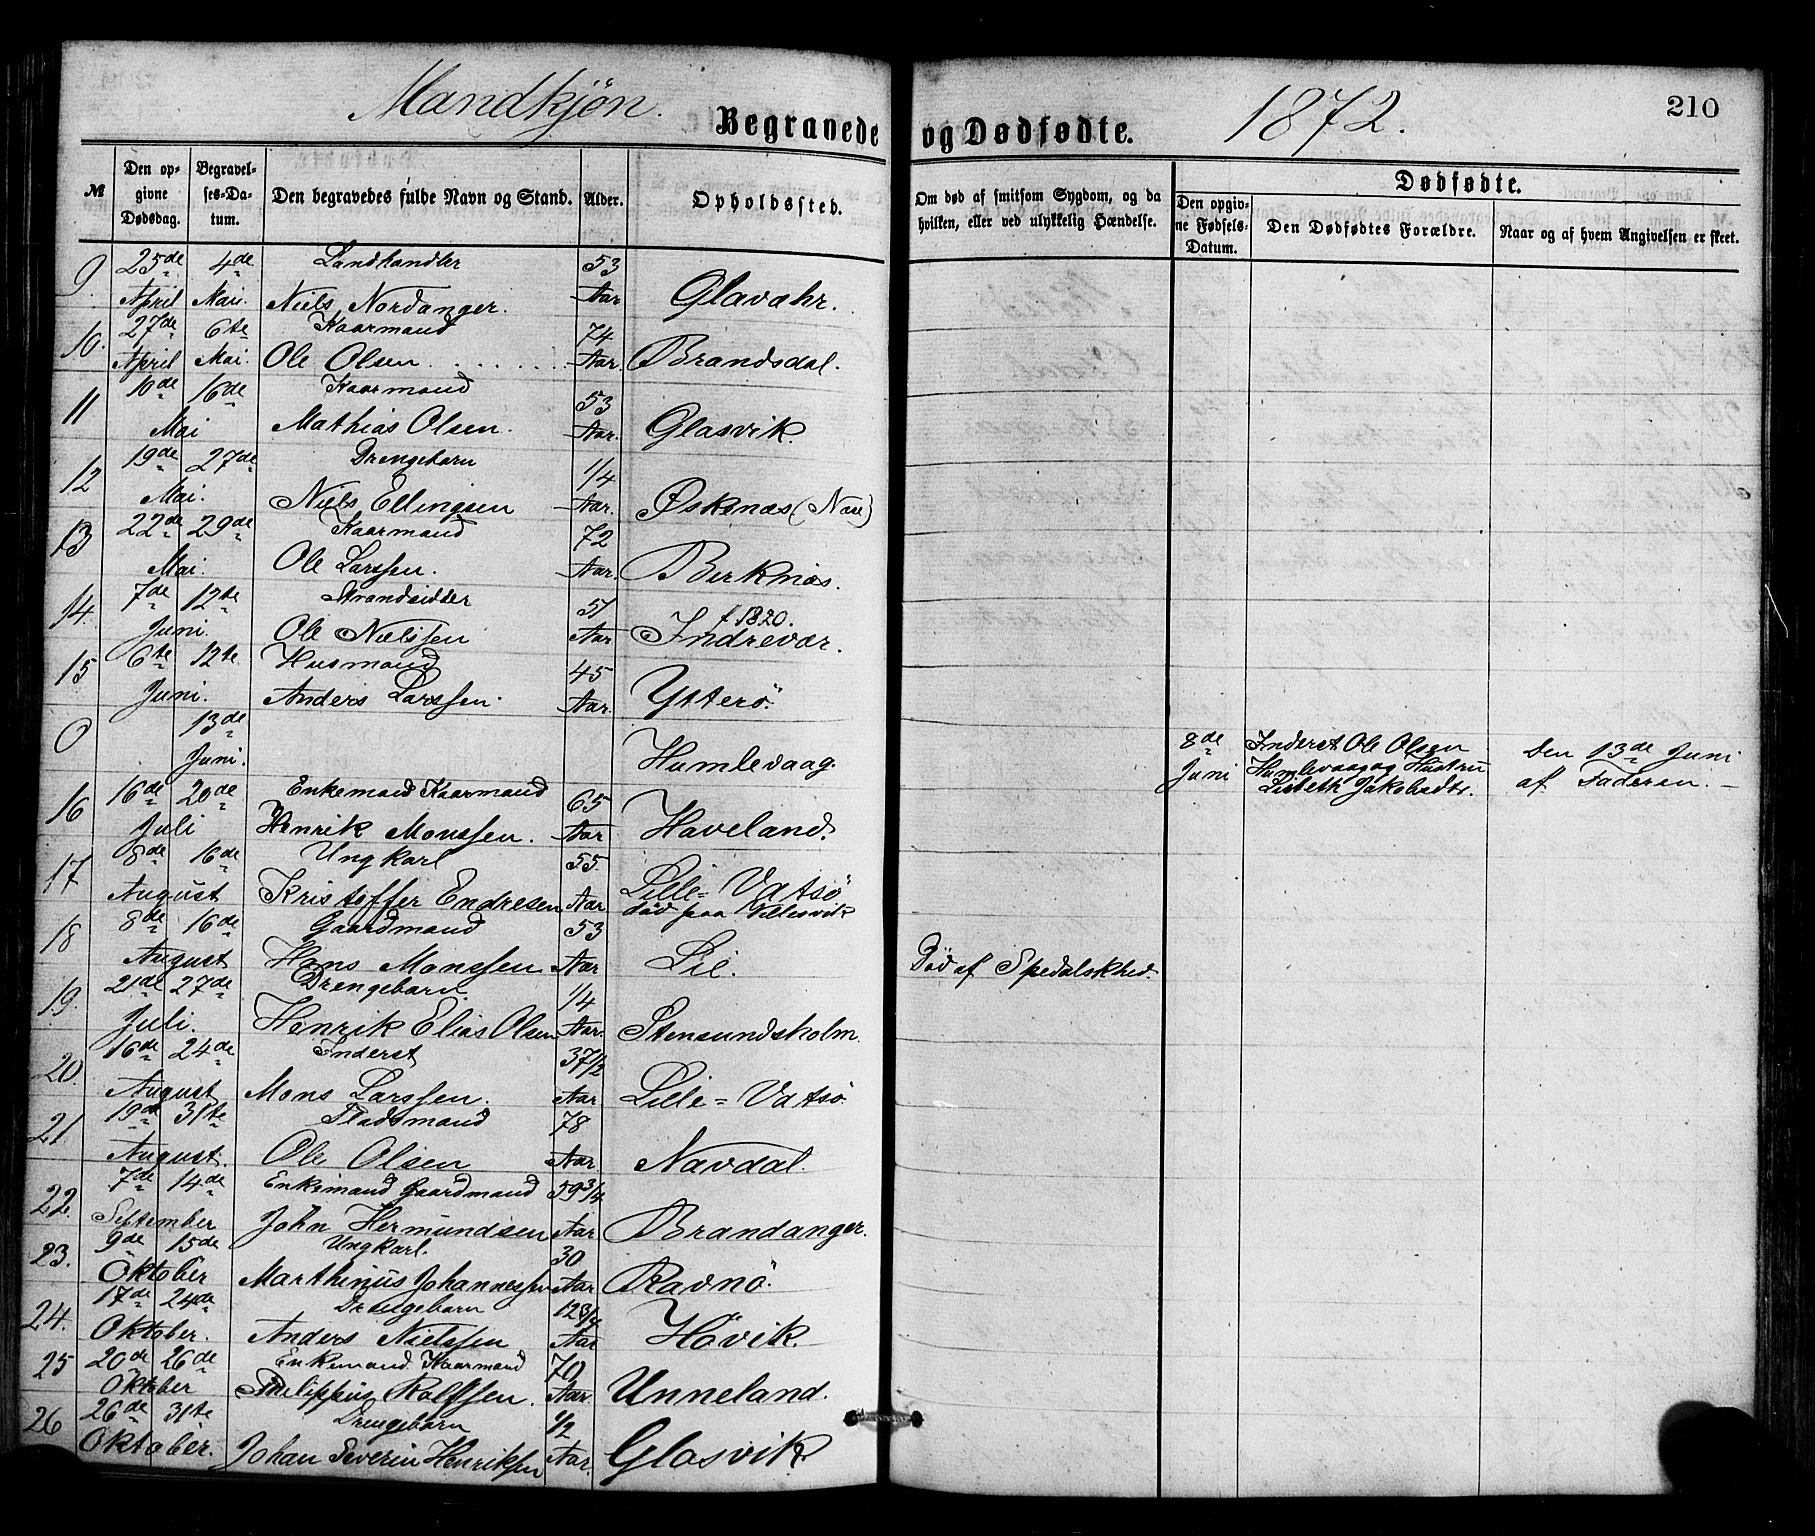 Mandkjøn. Begravede og Dødfødte. 1872. 210
№ Den opgivne Dødsdag. Begravelses-Datum. Den begravedes fulde Navn og Stand. Alder. Opholdssted. Om død af smitsom Sygdom, og da hvilken, eller ved ulykkelig Hændelse. Dødfødte. Den opgivne Fødsels-Datum. Den Dødfødtes Forældre. Naar og af hvem Angivelsen er skeet.
9. 25de 4de Landhandler 53
April Mai. Niels Nordanger. Aar Glavahr.
10. 27de 6te Kaarmand 74
April Mai. Ole Olsen Aar. Brandsdal.
11 10de 16de Kaarmand 53
Mai Mathias Olsen. Aar. Glasvik.
12 19de 27de Drengebarn 1/4
Mai. Niels Ellingsen Aar. Øskenæs
13 22de 29de Kaarmand 72
Mai. Ole Larssen. Aar. Birknæs.
14. 7de 12te Strandsidder 51 f 1820.
Juni. Ole Nielssen Aar Indrevær.
15 6te 12te. Husmand 45
Juni. Anders Larssen. Aar. Ytterö.
0 13de 8de Inderst Ole Olsen Den 13de Juni
Juni. Humlevaag. Juni Humlevaag og Hustru af Faderen.
Lisbeth Jakobsdtr.
16 16de 20de Enkemand Kaarmand 65
Juli Henrik Monssen. Aar Haveland.
17 8de 16de Ungkarl 55.
August Kristoffer Endresen Aar Lille=Vatsö
død paa Villesvik
18 8de 16de Gaardmand 53
August Hans Monssen Aar Lie. Död af Spedalskhed.
19. 21de 27de Drengebarn. 1/4
Juli. Henrik Elias Olsen Aar. Stensundsholm.
20. 16de 24de Inderst 37 1/2
August Mons Larssen. Aar Lille=Vatsö
21. 19de 31te Pladsmand 78
August. Ole Olsen Aar. Navdal.
22. 7de 14de Enkemand Gaardmand 59 3/4
September John Hermundsen Aar Brandanger.
23. 9de 15de Ungkarl. 30
Oktober Marthinus Johannessen Aar Ravnö.
24. 17de 24de Drengebarn 12 3/4
Oktober. Anders Nielssen Aar Hövik.
25 20de 26de Enkemand Kaarmand 70
Oktober Philippus Rolfssen. Aar. Unneland.
26 26de 31te Drengebarn 1/2
Oktober. Johan Severin Henriksen Aar. Glasvik